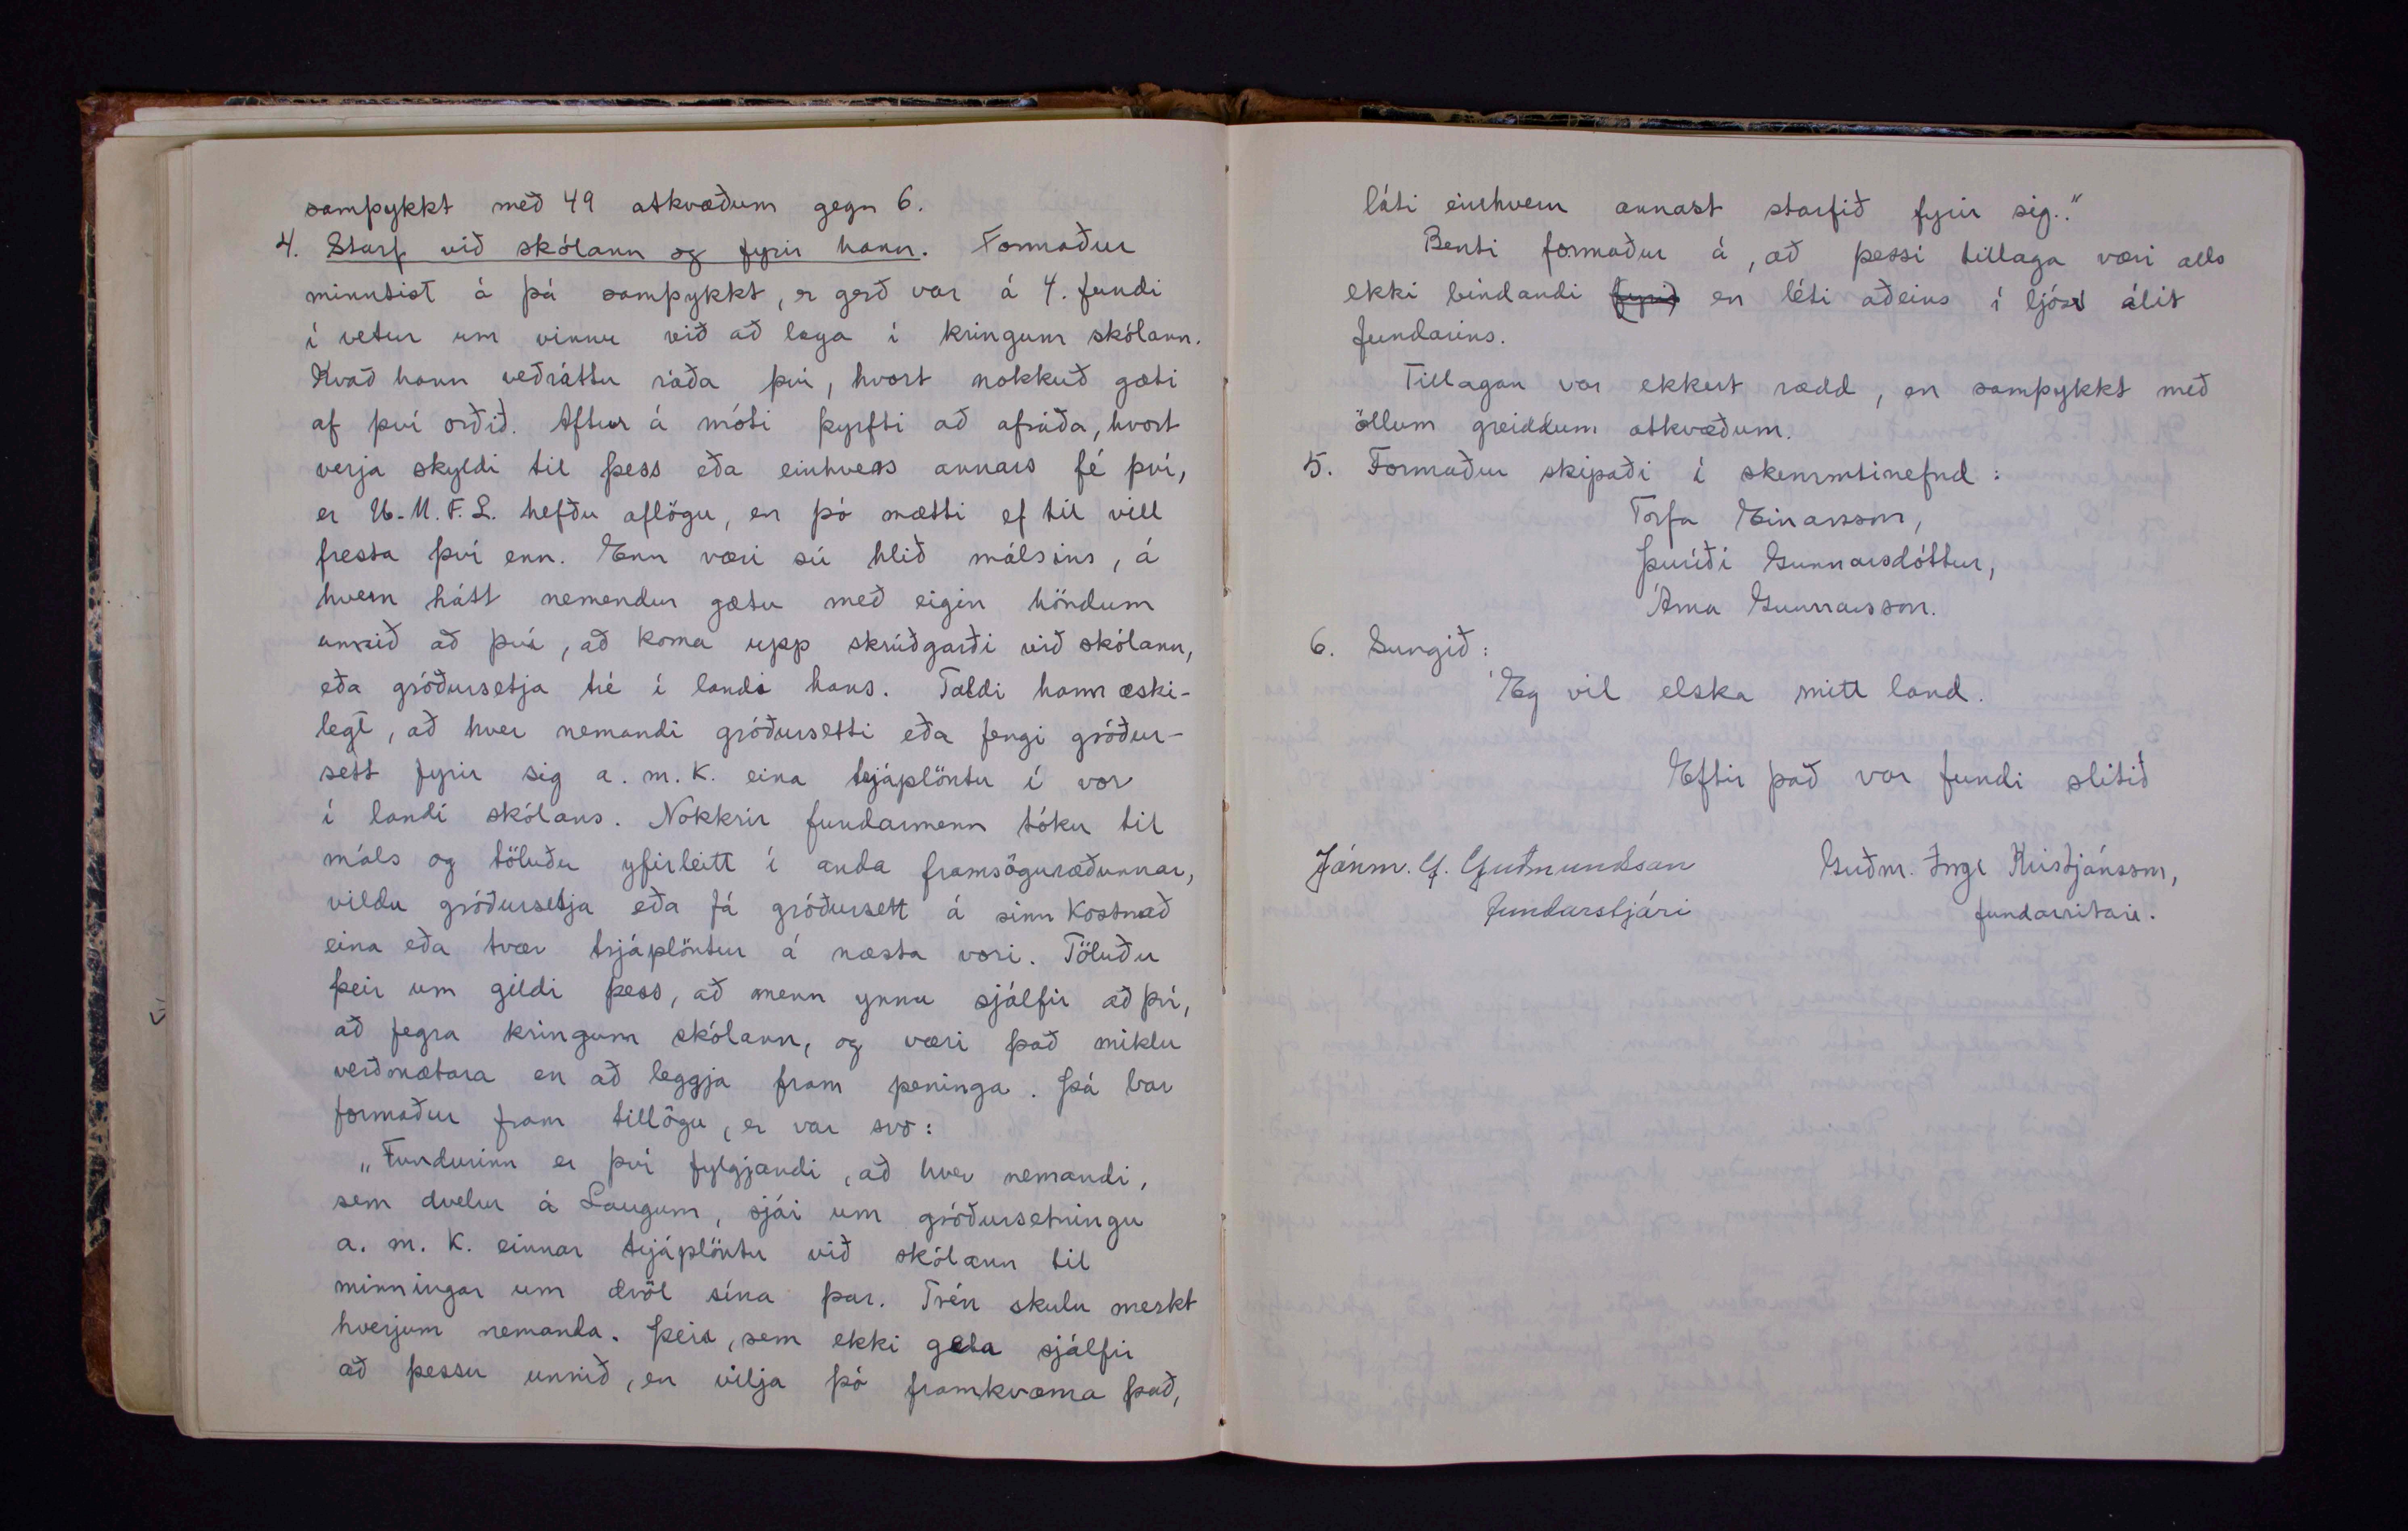 samþykkt með 49 atkvæðum gegn 6.
4. Starf við skólann og fyrir hann. Formaður
minntist á þá samþykkt, er gerð var á 4. fundi
í vetur um vinnu við að laga í kringum skólann.
Kvað hann veðráttu ráða því, hvort nokkuð gæti
af því orðið. Aftur á móti þyrfti að afráða, hvort
verja skyldi til þess eða einhvers annars fé því,
er U.M.F.L. hefðu aflögu, en þó mætti ef til vill
fresta því enn. Enn væri sú hlið málsins, á
hvern hátt nemendur gætu með eigin höndum
unnið að því, að koma upp skrúðgarði við skólann,
eða gróðursetja tré í landi hans. Taldi hann æski-
legt, að hver nemandi gróðursetti eða fengi gróður-
sett fyrir sig a.m.k. eina trjáplöntu í vor
í landi skólans. Nokkrir fundarmenn tóku til
máls og töluðu yfirleitt í anda framsöguræðunnar,
vildu gróðursetja eða fá gróðursett á sinn kostnað
eina eða tvær trjáplöntur á næsta vori. Töluðu
þeir um gildi þess, að menn ynnu sjálfir að því,
að fegra kringum skólann, og væri það miklu
verðmætara en að leggja fram peninga. Þá bar
formaður fram tillögu, er var svo:
„Fundurinn er því fylgjandi, að hver nemandi,
sem dvelur á Laugum, sjái um gróðursetningu
a.m.k. einnar trjáplöntu við skólann til
minningar um dvöl sína þar. Trén skulu merkt
hverjum nemanda. Þeir, sem ekki geta sjálfir
að þessu unnið, en vilja þó framkvæma það,
láti einhvern annast starfið fyrir sig."
Benti formaður á, að þessi tillaga væri alls
ekki bindandi (fyrir) en léti aðeins í ljósi álit
fundarins.
Tillagan var ekkert rædd, en samþykkt með
öllum greiddum atkvæðum.
5. Formaður skipaði í skemmtinefnd:
Torfa Einarsson,
Þuríði Gunnarsdóttur,
Árna Gunnarsson.
6. Sungið:
Ég vil elska mitt land.
Eftir það var fundi slitið
Jánm. G. Guðmundsson
fundarstjóri
Guðm. Ingi Kristjánsson,
fundarritari.